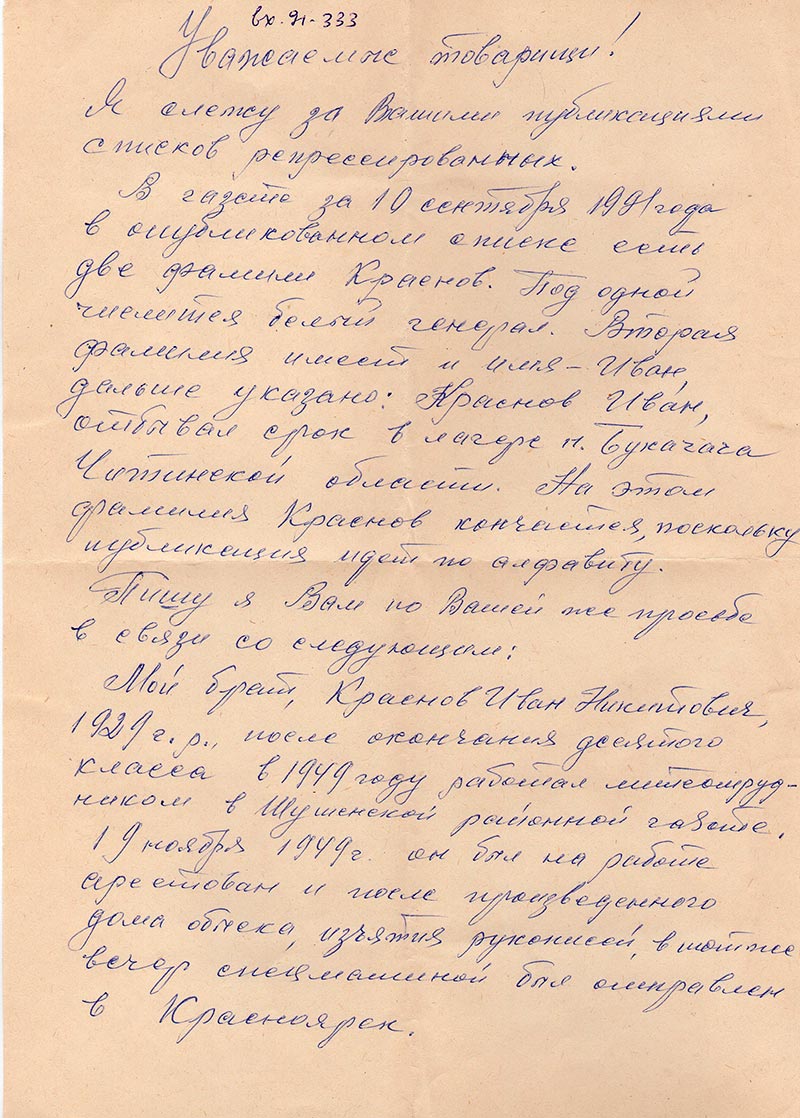 вх. 91-333
Уважаемые товарищи!
Я слежу за Вашими публикациями
списков репрессированных.
В газете за 10 сентября 1991 года
в опубликованном списке есть
две фамилии Краснов. Под одной
числится белый генерал. Вторая
фамилия имеет и имя - Иван,
дальше указано: Краснов Иван,
отбывал срок в лагере п. Букачача
Читинской области. На этом
фамилия Краснов кончается, поскольку
публикация идет по алфавиту.
Пишу я Вам по Вашей же просьбе
в связи со следующим:
Мой брат, Краснов Иван Никитович,
1929 г.р., после окончания десятого
класса в 1949 году работал литсотруд-
ником в Шушенской районной газете.
19 ноября 1949 г. он был на работе
арестован и после произведенного
дома обыска, изъятия рукописей, в тот же
вечер спецмашиной был отправлен
в Красноярск.